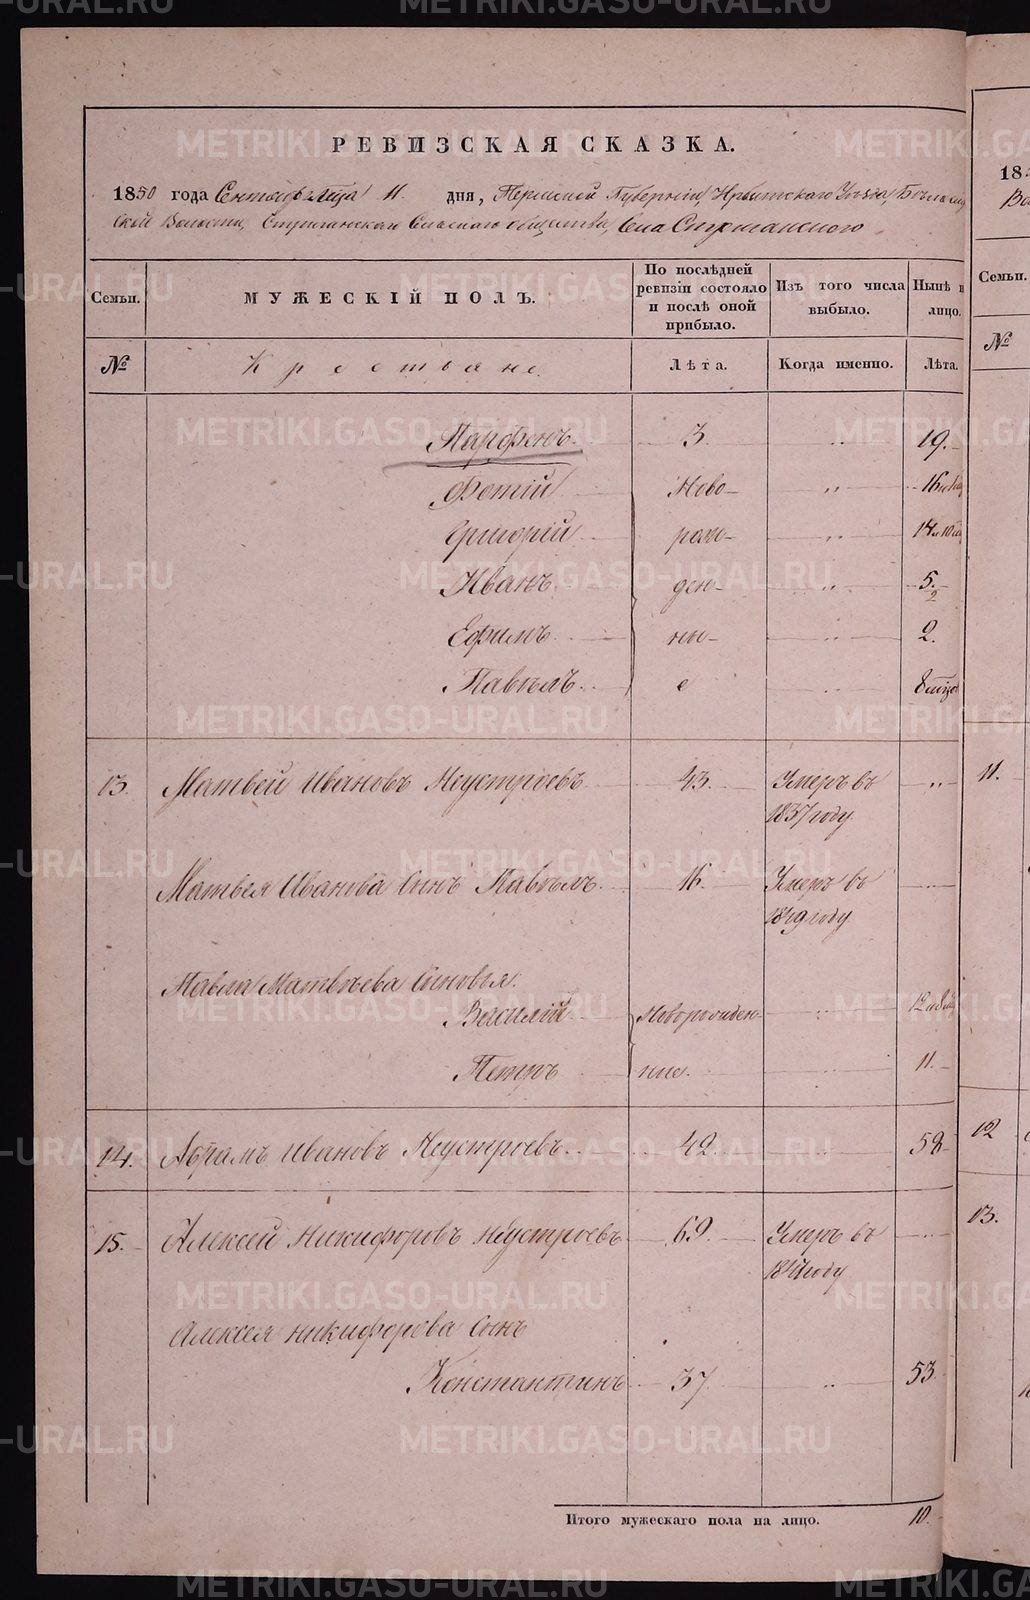 РЕВИЗСКАЯ СКАЗКА.
1850 года Сентября 11 дня, Пермской Губерніи Ирбитскаго Уѣзда,
ской Волости, Стриганскаго Сельскаго общества, Села Стриганского
Семьи.
МУЖЕСКІЙ ПОЛЪ.
По послѣдней ревизіи состояло и послѣ оной прибыло.
Изъ того числа выбыло.
Нынѣ на лицо.
№
Крестьяне
Лѣта.
Когда именно.
Лѣта.
Парфенъ 3. „ 19.
Фотій Ново- „ 16
Григорій рож- „ 14
Иванъ ден- „ 5.
Ефимъ ны- „ 2.
Павелъ е „ 8
13. Матвей Ивановъ Неустроевъ 43. Умеръ въ „
1837 году
Матвея Иванова Сынъ Павелъ 16. Умеръ въ
1849 году
Павла Матвѣева Сыновья.
Василій Новорожден- „ 12
Петръ ные. 11.
14. Абрамъ Ивановъ Неустроевъ 42. 58
15. Алексей Никифоровъ Неустроевъ 69. Умеръ въ
году
Алексея Никифорова Сынъ
Константинъ 37 „ 53
Итого мужескаго пола на лицо. 10.
185
Семьи.
№
11.
12
13.
METRIKI.GASO-URAL.RU